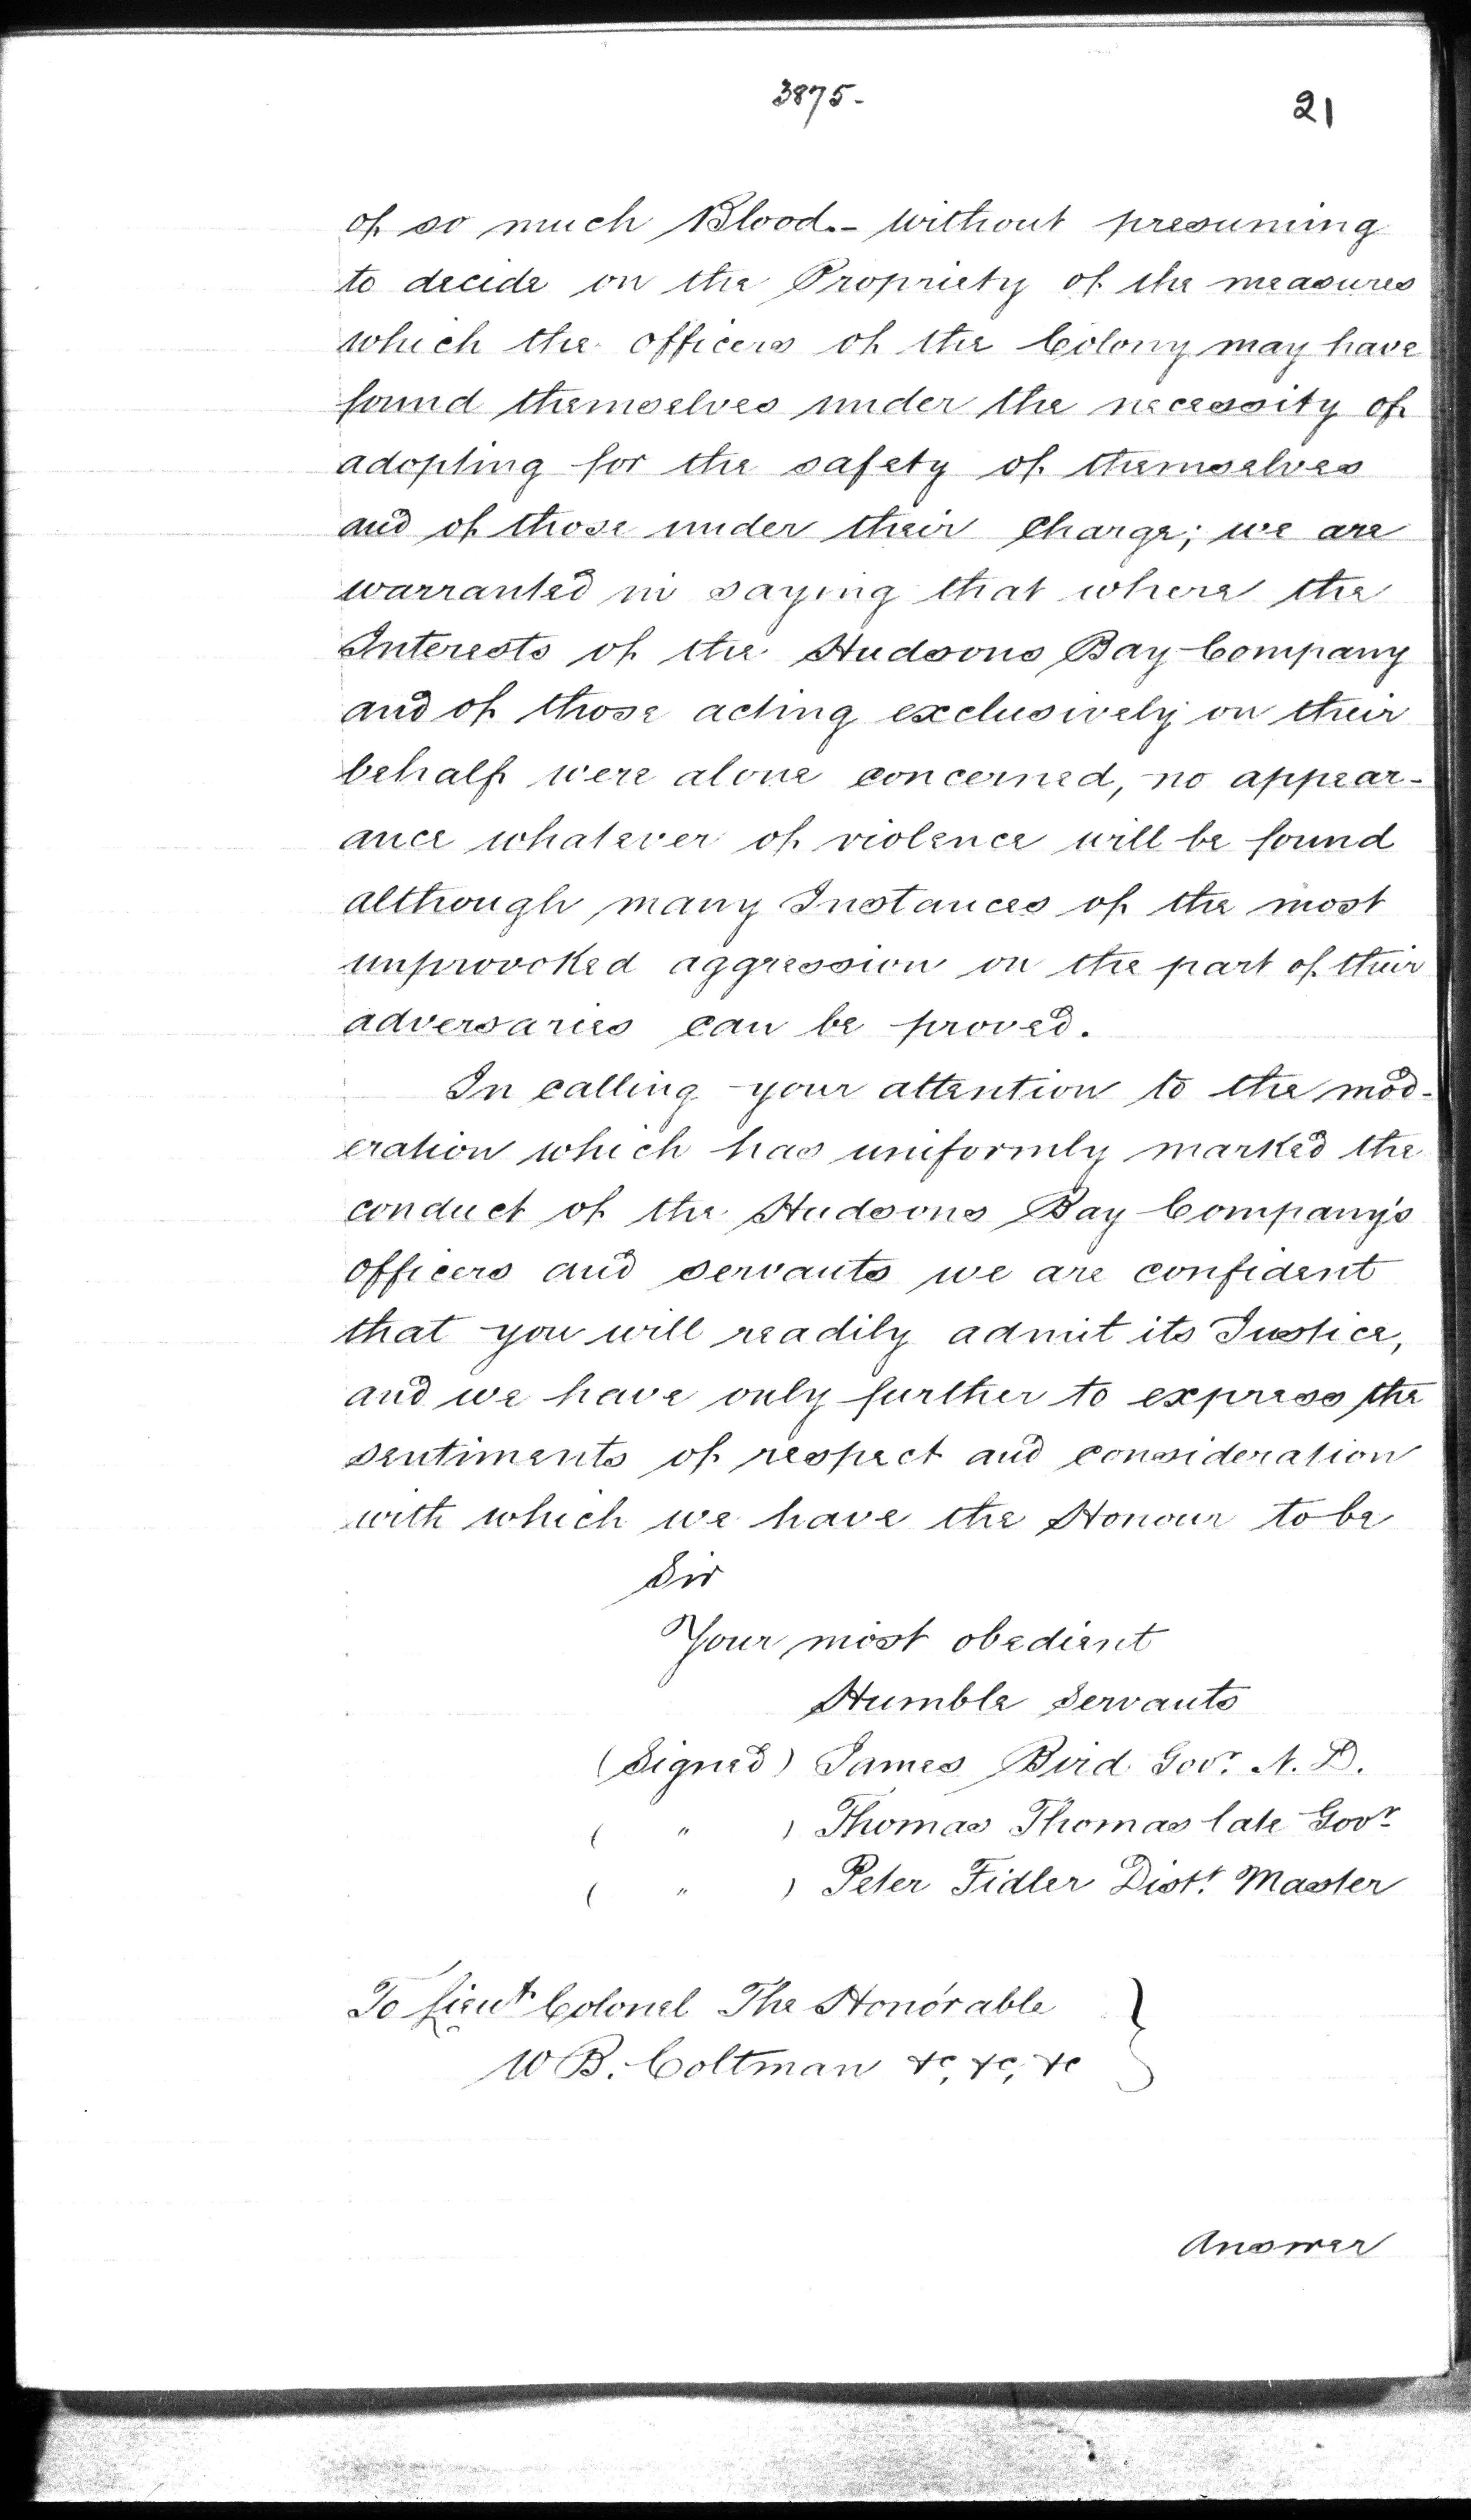 3875-
21
of so much Blood.- without presuming
to decide on the Propriety of the measures
which the officers of the Colony may have
found themselves under the necessity of
adopting for the safety of themselves
and of those under their Charge; we are
warranted in saying that where the
Interests of the Hudsons Bay Company
and of those acting exclusively on their
behalf were alone concerned, no appear-
ance whatever of violence will be found
although many Instances of the most
unprovoked aggression on the part of their
adversaries can be proved.
In calling your attention to the mod-
eration which has uniformly marked the
conduct of the Hudsons Bay Company's
officers and servants we are confident
that you will readily admit its Justice,
and we have only further to express the
sentiments of respect and consideration
with which we have the Honour to be
Sir
Your most obedient
Humble Servants
(Signed) James Bird Govr. N. D.
( " ) Thomas Thomas late Govr
( " ) Peter Fidler Distt. Master
To Lieut Colonel The Honorable
W B. Coltman &c, &c, &c
Answer